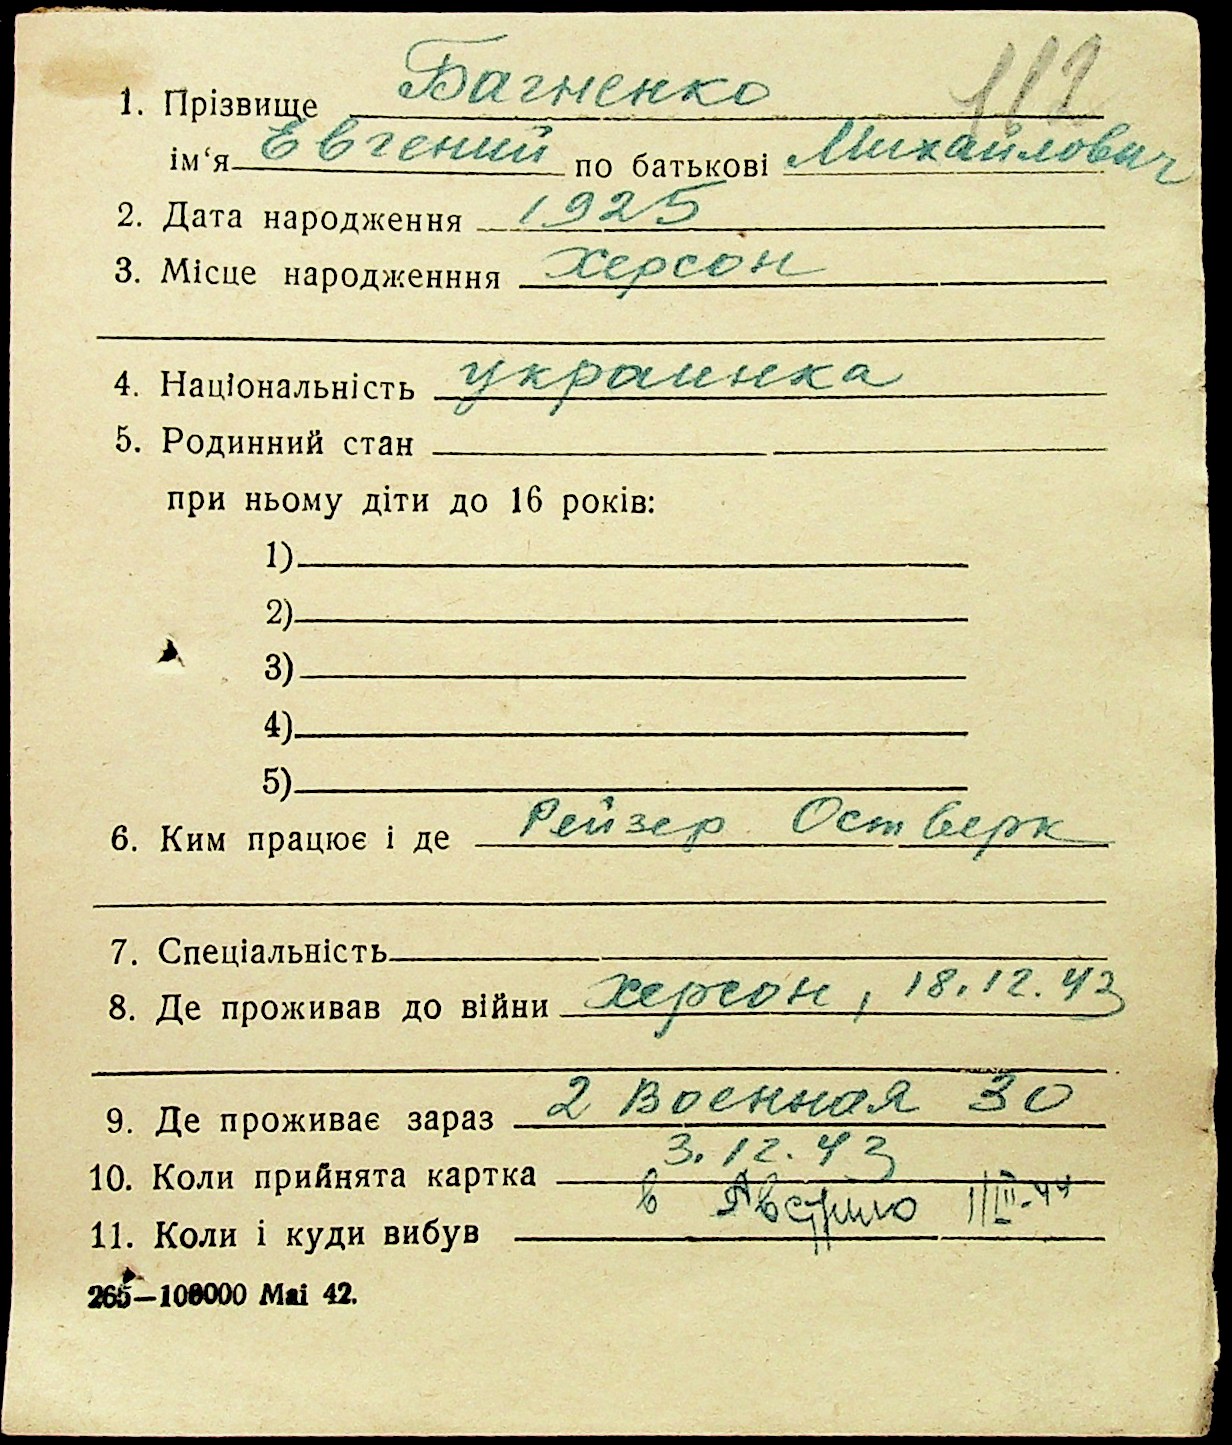 112
1. Прізвище Багненко
ім‘я Евгений по батькові Михайлович
2. Дата народження 1925
3. Місце народженння Херсон
4. Національність украинка
5. Родинний стан
при ньому діти до 16 років:
1)
2)
3)
4)
5)
6. Ким працює і де Рейзер Оствerк
7. Спеціальність
8. Де проживав до війни Херсон, 18.12.43
9. Де проживає зараз 2 Военная 30
10. Коли прийнята картка 3.12.43
11. Коли і куди вибув в Австрию 1/III-44
265—100000 Mai 42.